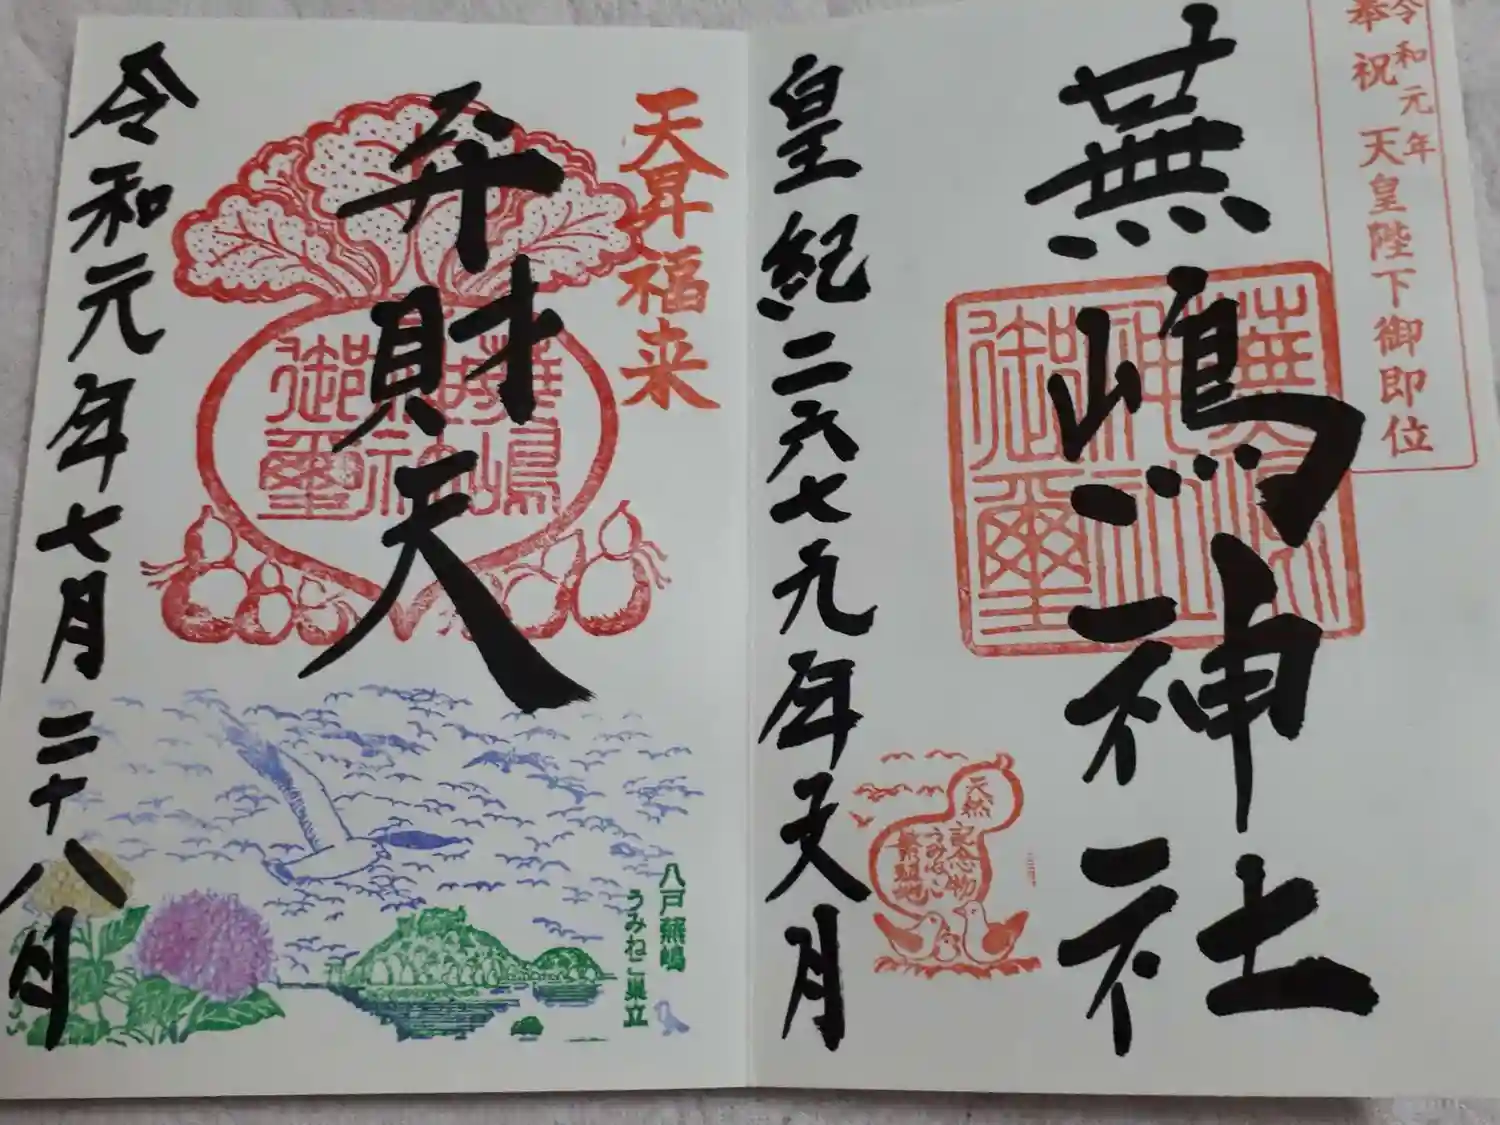 令和元年
奉祝 天皇陛下御即位
蕪嶋神社
蕪嶋
神社
御璽
天然
記念物
うみねこ
繁殖地
皇紀二六七九年文月
天昇福来
弁財天
蕪嶋
神社
御璽
八戸蕪嶋
うみねこ巣立
令和元年七月二十八日